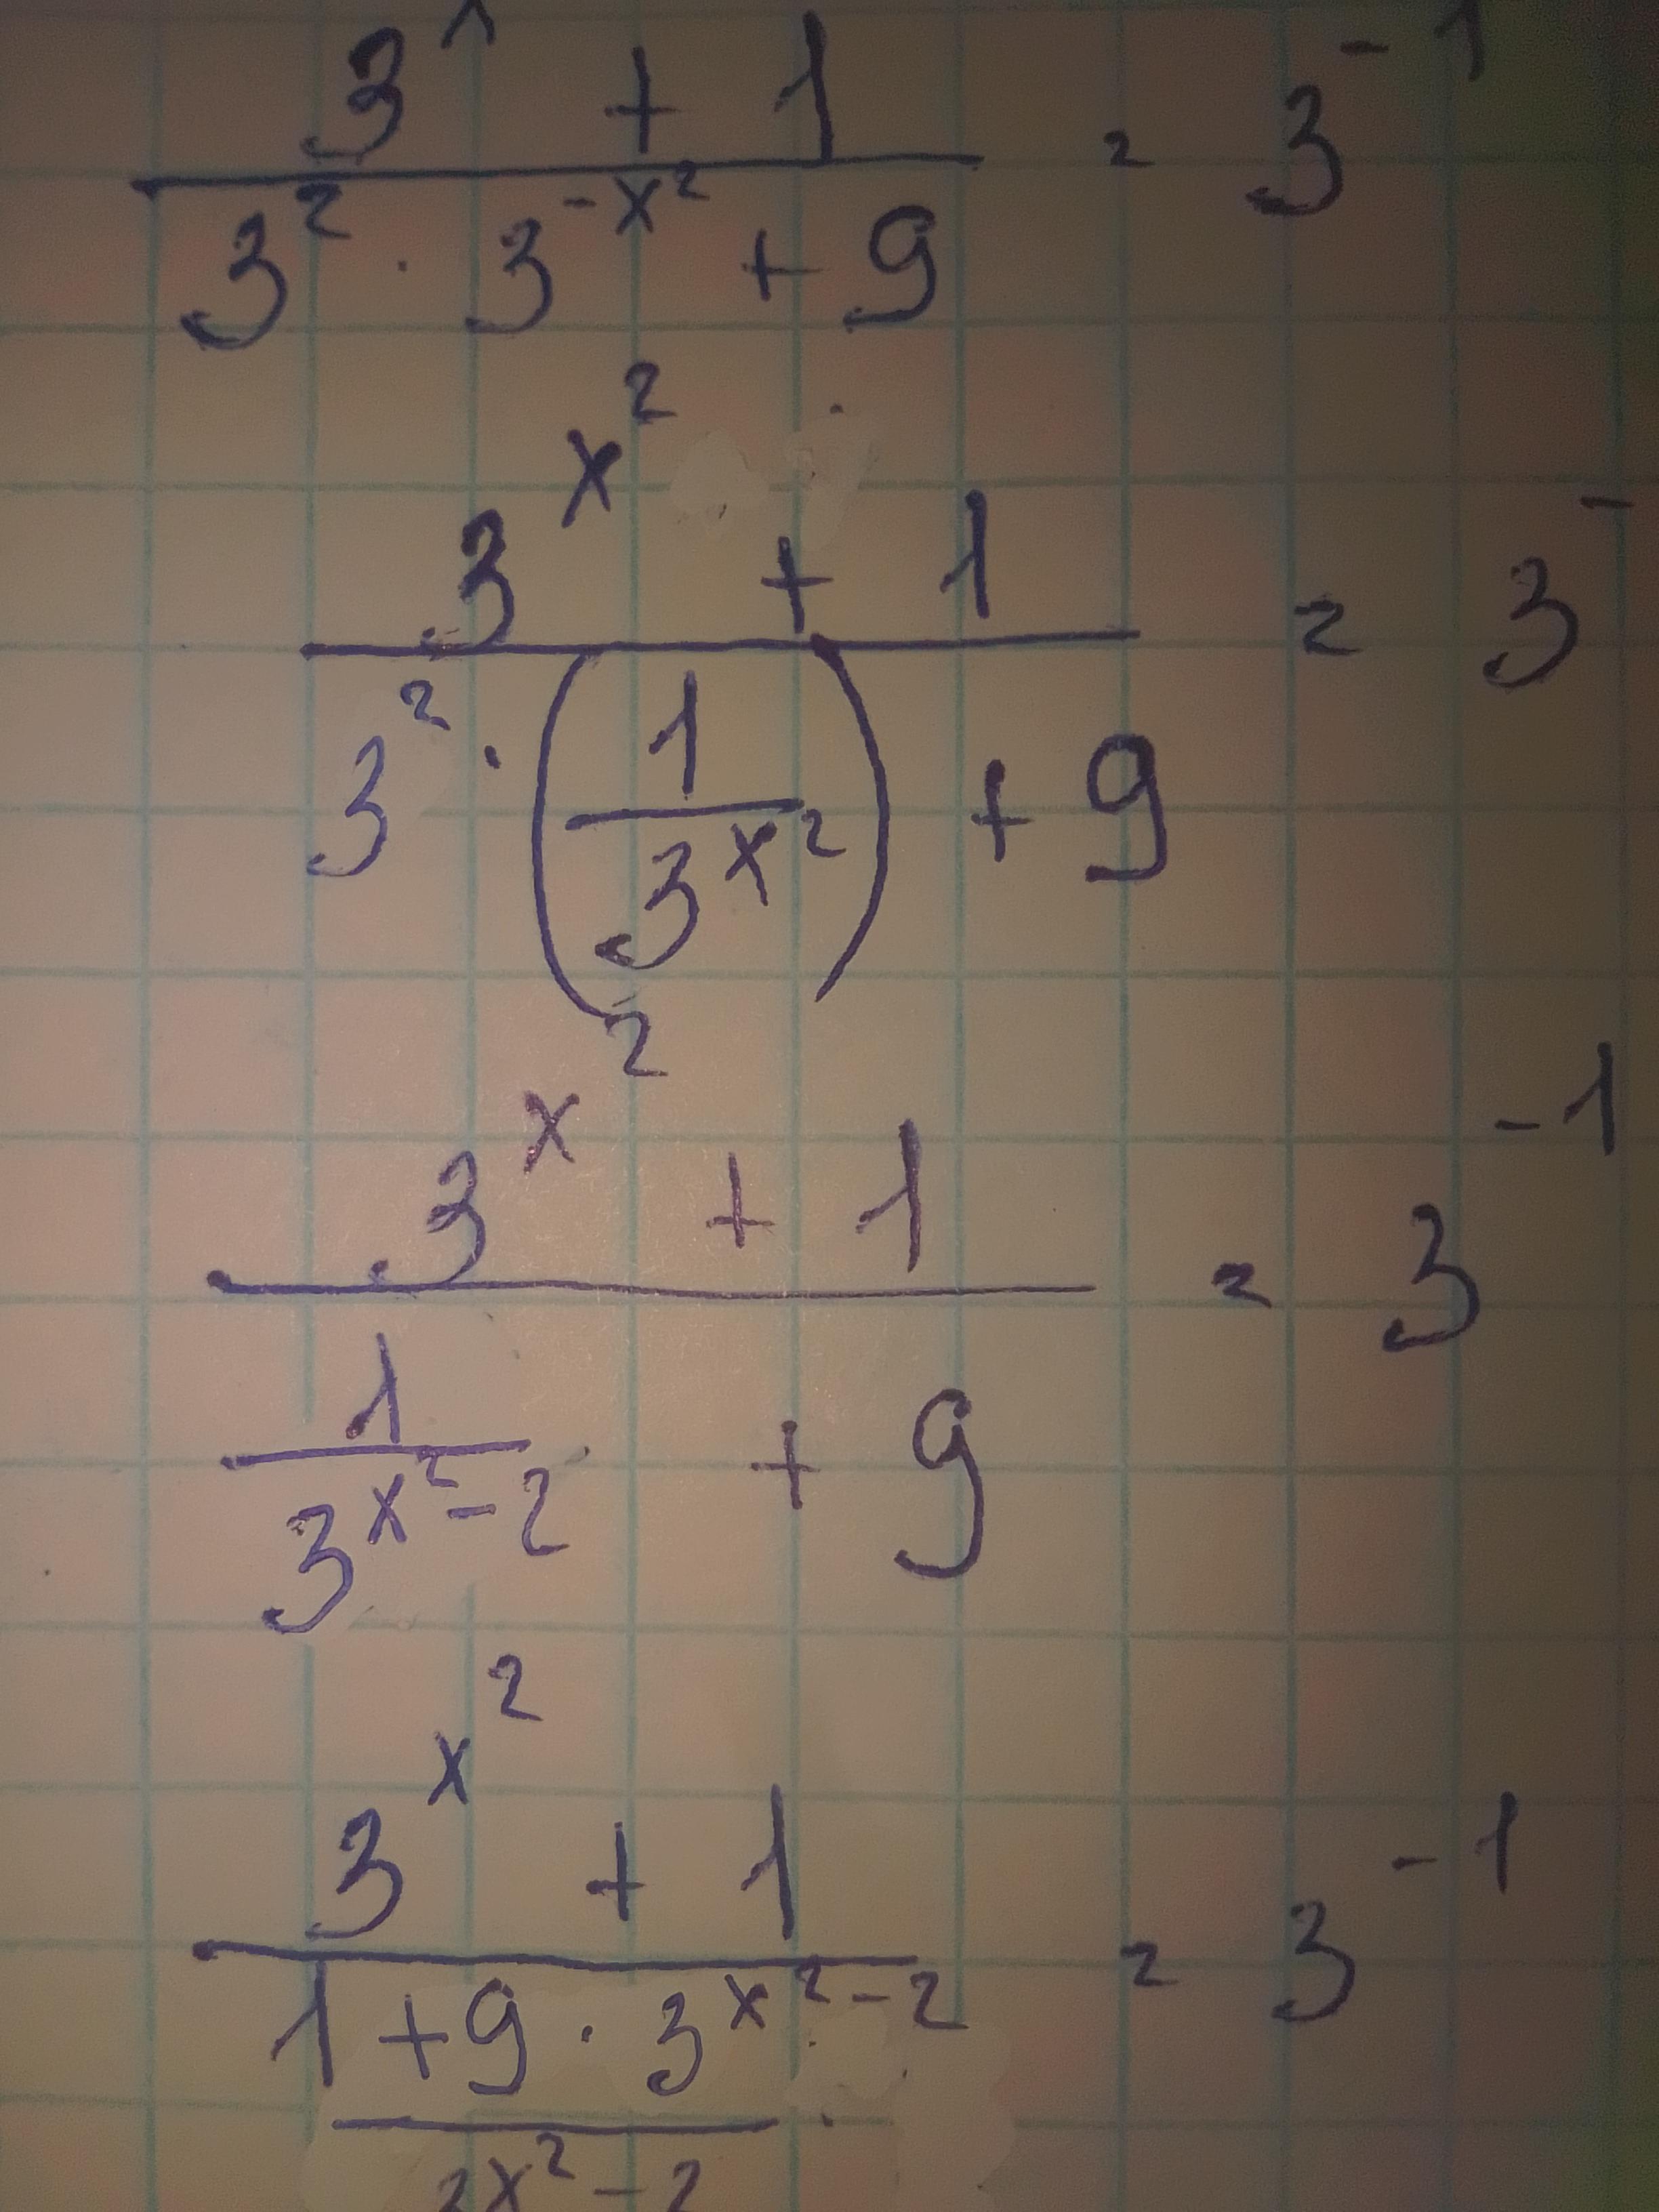 3^x + 1
3² · 3^(-x²) + 9 = 3^(-1)
3^(x²) + 1
3² · (1 / 3^(x²)) + 9 = 3^-
3^(x²) + 1
1 / 3^(x²-2) + 9 = 3^(-1)
3^(x²) + 1
1 + 9 · 3^(x²-2) = 3^(-1)
3^(x²-2)